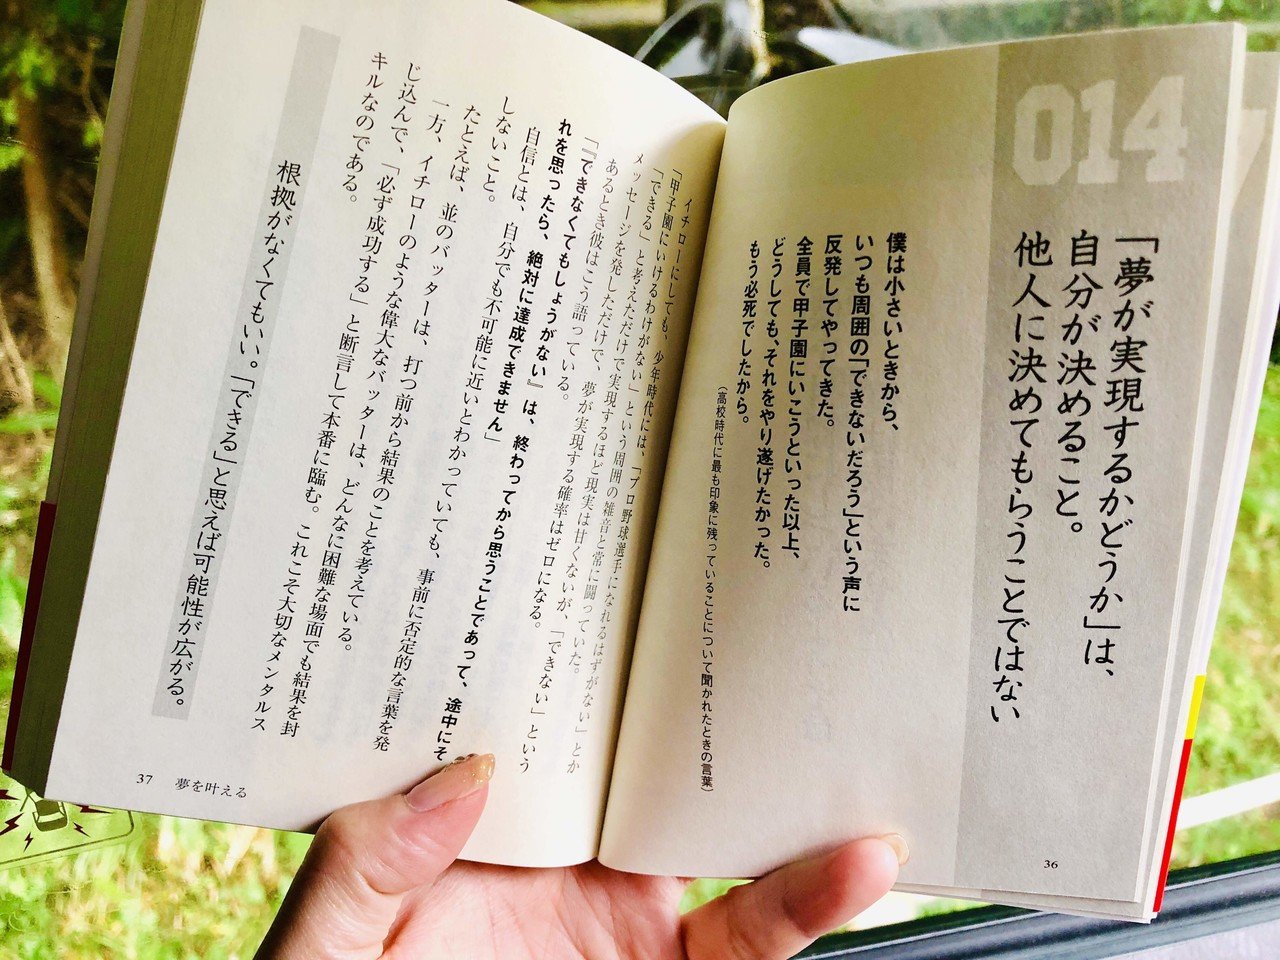 014
「夢が実現するかどうか」は、
自分が決めること。
他人に決めてもらうことではない
僕は小さいときから、
いつも周囲の「できないだろう」という声に
反発してやってきた。
全員で甲子園にいこうといった以上、
どうしても、それをやり遂げたかった。
もう必死でしたから。
（高校時代に最も印象に残っていることについて聞かれたときの言葉）
36
イチローにしても、少年時代には、「プロ野球選手になれるはずがない」とか
「甲子園にいけるわけがない」という周囲の雑音と常に闘っていた。
「できる」と考えただけで実現するほど現実は甘くないが、「できない」という
メッセージを発しただけで、夢が実現する確率はゼロになる。
あるとき彼はこう語っている。
「『できなくてもしょうがない』は、終わってから思うことであって、途中にそ
れを思ったら、絶対に達成できません」
自信とは、自分でも不可能に近いとわかっていても、事前に否定的な言葉を発
しないこと。
たとえば、並のバッターは、打つ前から結果のことを考えている。
一方、イチローのような偉大なバッターは、どんなに困難な場面でも結果を封
じ込んで、「必ず成功する」と断言して本番に臨む。これこそ大切なメンタルス
キルなのである。
根拠がなくてもいい。「できる」と思えば可能性が広がる。
37 夢を叶える